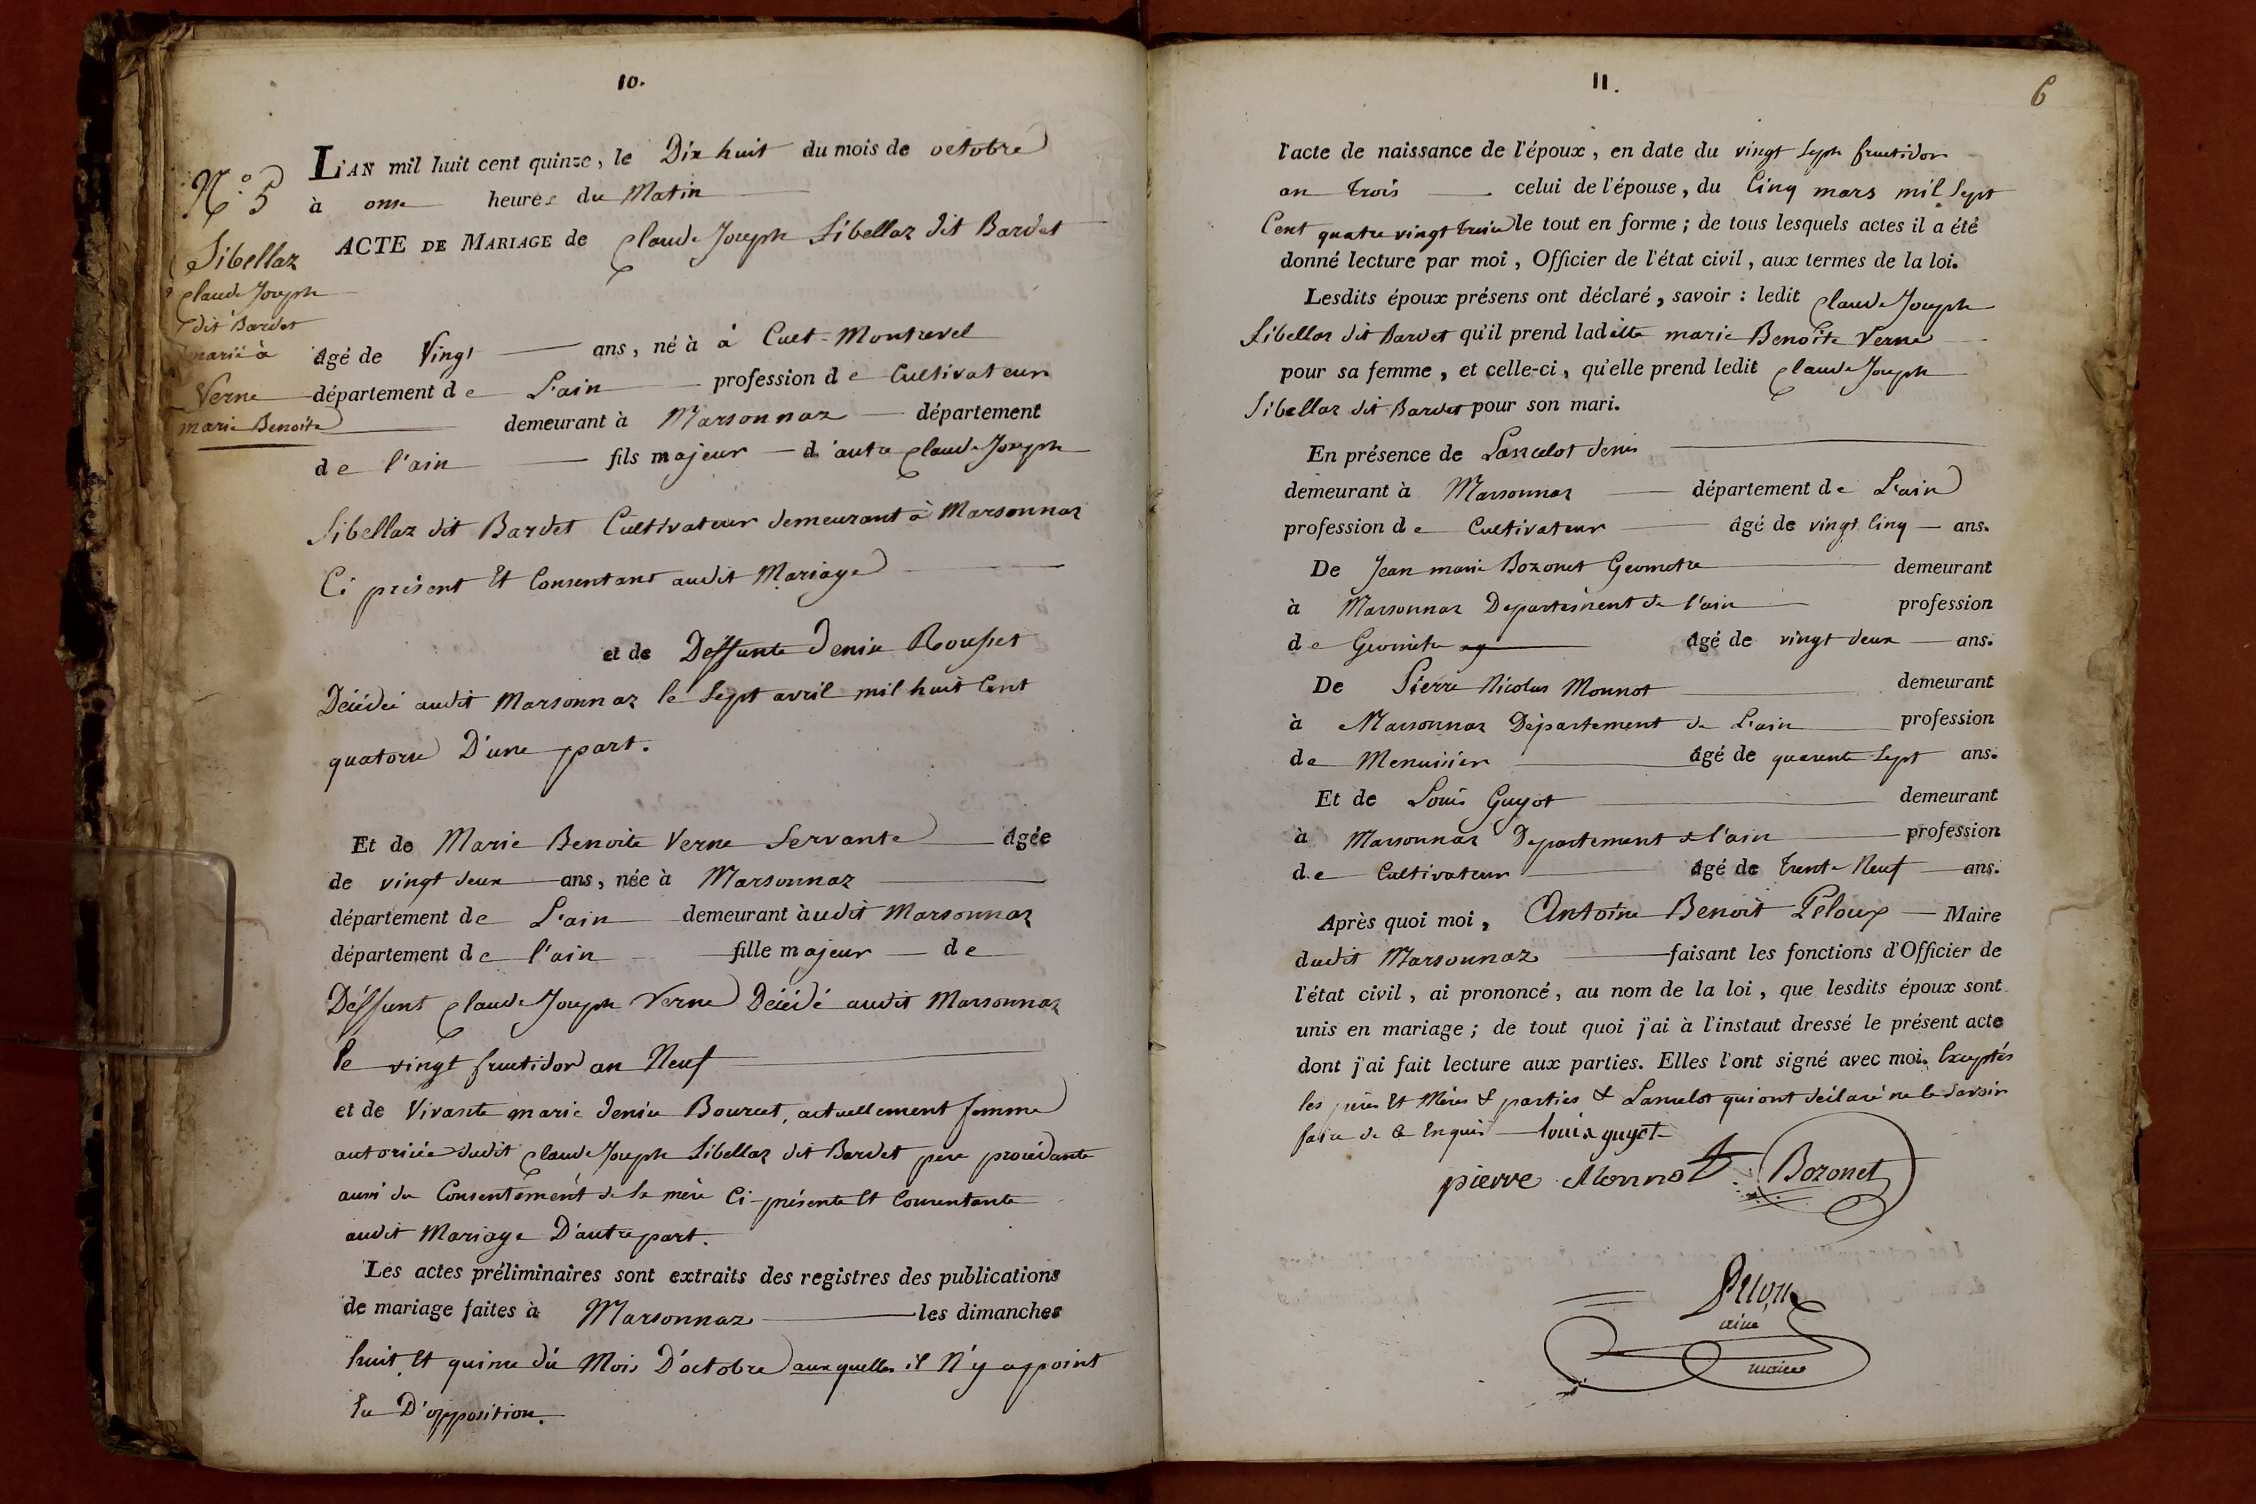 10.
N.º 5
Sibellaz
Claude Joseph
dit Bardet
marié à
Verne
marie Benoite
L'AN mil huit cent quinze, le Dix huit du mois de octobre
à onze heures du Matin
ACTE DE MARIAGE de Claude Joseph Sibellaz dit Bardet
âgé de Vingt ans, né à à Cuet-Montrevel
département de L'ain profession de Cultivateur
demeurant à Marsonnaz département
de l'ain fils majeur d'autre Claude Joseph
Sibellaz dit Bardet Cultivateur demeurant à Marsonnaz
Ci présent Et Consentant audit Mariage
et de Deffunte Denise Rousset
Décédée audit Marsonnaz le Sept avril mil huit Cent
quatorze D'une part.
Et de Marie Benoite Verne Servante âgée
de vingt deux ans, née à Marsonnaz
département de L'ain demeurant àudit Marsonnaz
département de l'ain fille majeur de
Déffunt Claude Joseph Verne Décédé audit Marsonnaz
le vingt fructidor an Neuf
et de Vivante marie Denise Bourcet, actuellement femme
autorisée dudit Claude Joseph Sibellaz dit Bardet père procédante
aussi du Consentement de la mère Ci-présente Et Consentante
audit Mariage D'autre part.
Les actes préliminaires sont extraits des registres des publications
de mariage faites à Marsonnaz les dimanches
huit Et quinze du Mois D'octobre auxquelles il N'y a point
Eu D'opposition.
11.
6
l'acte de naissance de l'époux, en date du vingt Sept fructidor
an trois celui de l'épouse, du Cinq mars mil Sept
Cent quatre vingt treize le tout en forme; de tous lesquels actes il a été
donné lecture par moi, Officier de l'état civil, aux termes de la loi.
Lesdits époux présens ont déclaré, savoir: ledit Claude Joseph
Sibellaz dit Bardet qu'il prend ladite marie Benoite Verne
pour sa femme, et celle-ci, qu'elle prend ledit Claude Joseph
Sibellaz dit Bardet pour son mari.
En présence de Lancelot denis
demeurant à Marsonnaz département de L'ain
profession de Cultivateur âgé de vingt Cinq ans.
De Jean marie Bozonet Geometre demeurant
à Marsonnaz Departement de l'ain profession
de Geométre âgé de vingt deux ans.
De Pierre Nicolas Monnot demeurant
à Marsonnaz Département de L'ain profession
de Menuisier âgé de quarente Sept ans.
Et de Louis Guyot demeurant
à Marsonnaz Departement de l'ain profession
de Cultivateur âgé de trente Neuf ans.
Après quoi moi, Antoine Benoit Peloux Maire
dudit Marsonnaz faisant les fonctions d'Officier de
l'état civil, ai prononcé, au nom de la loi, que lesdits époux sont
unis en mariage; de tout quoi j'ai à l'instaut dressé le présent acte
dont j'ai fait lecture aux parties. Elles l'ont signé avec moi. Exceptés
les pères Et Mères & parties & Lancelot qui ont déclaré ne le Savoir
faire de ce Enquis louis guyot
pierre Monnot Bozonet
Peloux
ainé
maire